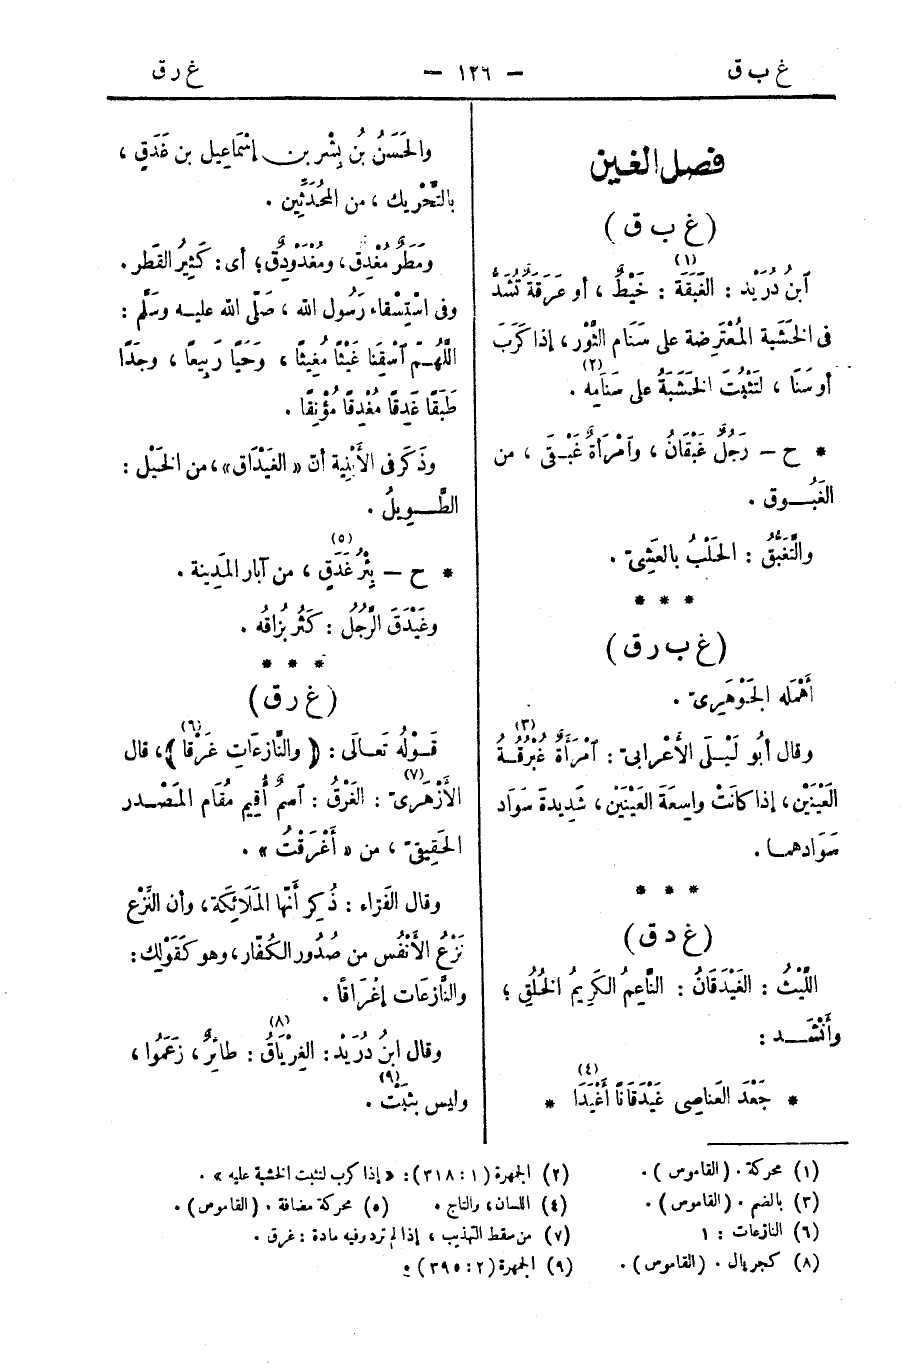 غ ب ق — ١٢٦ — غ ر ق
فصل الغين
(غ ب ق)
ٱبنُ دُرَيْد : الغَبَقَة (١) : خَيْطٌ ، أو عَرَقَةٌ تُشَدُّ
فى الخَشَبة المُعْتَرِضة على سَنَام الثَّوْر ، إذا كَرَبَ
أو سَنَا ، لتَثْبُتَ الخَشَبَةُ على سَنَامِه (٢) .
* ح — رَجُلٌ غَبْقَانُ ، وٱمْرأةٌ غَبْقَى ، من
الغَبُوق .
والتَّغَبُّقُ : الحَلْبُ بالعَشِىّ .
* * *
(غ ب ر ق)
أهْمَله الجَوْهَرِىّ .
وقال أبُو لَيْلَى الأعْرابىّ : ٱمْرَأةٌ غُبْرُقَةُ (٣)
العَيْنَيْن ، إذا كانَتْ واسِعَةَ العَيْنَيْن ، شَدِيدةَ سَوَاد
سَوَادهما .
* * *
(غ د ق)
اللَّيْثُ : الغَيْدَقَانُ : النّاعِمُ الكَرِيمُ الخُلُقِ ؛
وأنْشَد :
* جَعْدَ العَنَاصِى غَيْدَقَانًا أَغْيَدَا (٤) *
والحَسَنُ بْنُ بِشْر بن إسْمَاعِيل بن غَدَقٍ ،
بالتَّحْرِيك ، من المُحَدِّثين .
ومَطَرٌ مُغْدِقٌ ، ومُغْدَوْدِقٌ ؛ أى : كَثِيرُ القَطْر .
وفى اسْتِسْقاء رَسُول الله ، صَلّى الله عليه وسَلَّم :
اللَّهُمّ ٱسْقِنَا غَيْثًا مُغِيثًا ، وَحَيًا رَبِيعًا ، وجَدًا
طَبَقًا غَدِقًا مُغْدِقًا مُؤْنِقًا .
وذَكَر فى الأَبْنِية أنّ « الغَيْدَاق » ، من الخَيْل :
الطَّوِيلُ .
* ح — بِئْرُ غَدَقٍ (٥) ، من آبار المَدِينة .
وغَيْدَقَ الرَّجُلُ : كَثُر بُزَاقُه .
* * *
(غ ر ق)
قَوْلُه تَعَالَى : ﴿ والنَّازِعَاتِ غَرْقًا (٦) ﴾ ، قال
الأزْهَرِىّ (٧) : الغَرْقُ : ٱسمٌ أُقِيم مُقَام المَصْدر
الحَقِيقىّ ، من « أَغْرَقْتُ » .
وقال الفَرّاء : ذُكِر أَنّها المَلَائِكَة ، وأن النَّزْع
نَزْعُ الأَنْفُس من صُدُور الكُفّار ، وهو كَقَوْلِك :
والنَّازِعَات إغْرَاقًا .
وقال ابنُ دُرَيْد : الغِرْيَاقُ (٨) : طائِرٌ ، زَعَمُوا ،
وليس بثبَتْ (٩) .
(١) محركة . (القاموس) .
(٢) الجمهرة (١ : ٣١٨) : « إذا كرب لتثبت الخشبة عليه » .
(٣) بالضم . (القاموس) .
(٤) اللسان ، والتاج .
(٥) محركة مضافة . (القاموس) .
(٦) النازعات : ١
(٧) من سقط التهذيب ، إذا لم ترد فيه مادة : غرق .
(٨) كجريال . (القاموس) .
(٩) الجمهرة (٢ : ٣٩٥) .